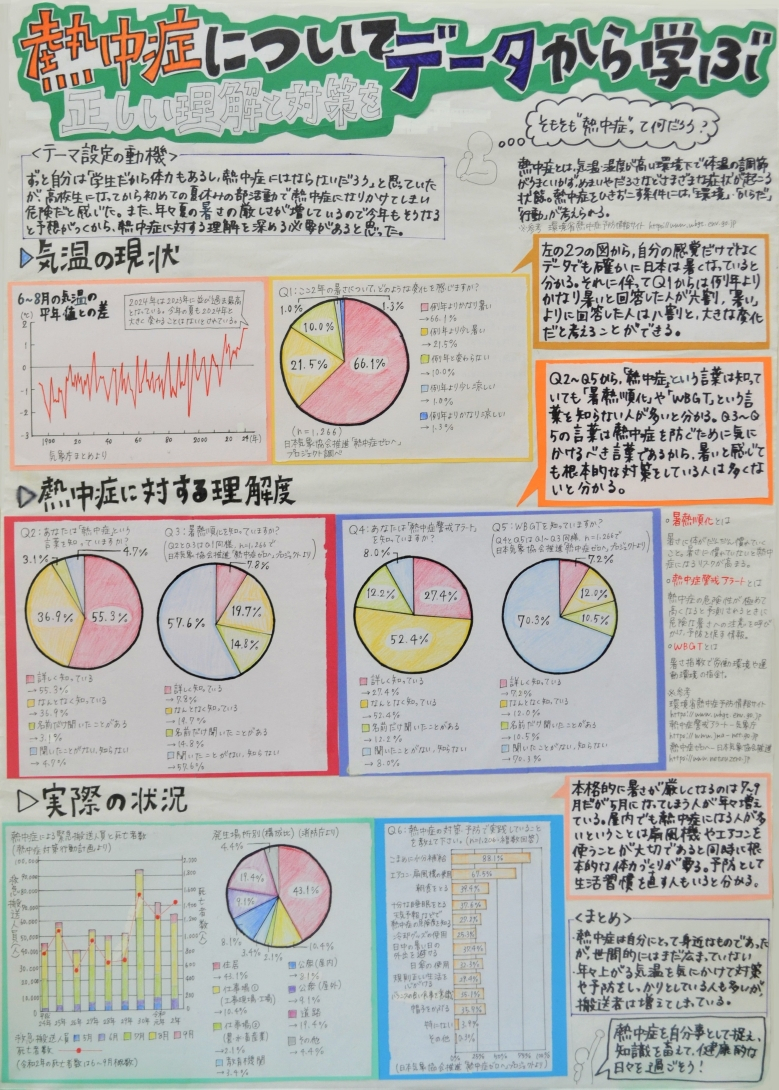 熱中症についてデータから学ぶ
正しい理解と対策を
そもそも"熱中症"って何だろう?
<テーマ設定の動機>
ずっと自分は「学生だから体力もあるし、熱中症にはならないだろう」と思っていた
が、高校生になってから初めての夏休みの部活動で熱中症になりかけてしまい
危険だと感じた。また、年々夏の暑さの厳しさが増しているので今年もそうなる
と予想がつくから、熱中症に対する理解を深める必要があると思った。
熱中症とは、気温・湿度が高い環境下で体温の調節
がうまくいかず、めまいやだるさなどさまざまな症状が起こる
状態。熱中症をひきおこす条件には、「環境」「からだ」
「行動」が考えられる。
※参考 環境省熱中症予防情報サイト
▷気温の現状
6~8月の気温の
平年値との差
2024年は2023年に並び過去最高
となっている。今年の夏も2024年と
大きく変わることはないとされている。
(℃)
2
1
0
-1
-2
-3
1900 20 40 60 80 2000 20 24(年)
気象庁まとめより
Q1:ここ2年の暑さについて、どのような変化を感じますか?
1.0%
1.3%
10.0%
21.5%
66.1%
例年よりかなり暑い
→66.1%
例年より少し暑い
→21.5%
例年と変わらない
→10.0%
例年より少し涼しい
→1.0%
例年よりかなり涼しい
→1.3%
(n=1,266)
日本気象協会推進「熱中症ゼロへ」
プロジェクト調べ
左の2つの図から、自分の感覚だけでなく
データでも確かに日本は暑くなっていると
分かる。それに伴ってQ1からは例年より
かなり暑いと回答した人が六割、「暑い」
よりに回答した人は八割と、大きな変化
だと考えることができる。
Q2~Q5から、「熱中症」という言葉は知って
いても「暑熱順化」や「WBGT」という言
葉を知らない人が多いと分かる。Q3~Q
5の言葉は熱中症を防ぐために気に
かけるべき言葉であるから、暑いと感じて
も根本的な対策をしている人は多くな
いと分かる。
▷熱中症に対する理解度
Q2:あなたは「熱中症」という
言葉を知っていますか?
3.1%
4.7%
36.9%
55.3%
詳しく知っている
→55.3%
なんとなく知っている
→36.9%
名前だけ聞いたことがある
→3.1%
聞いたことがない、知らない
→4.7%
Q3:暑熱順化を知っていますか?
(Q2とQ3はQ1同様、n=1,266で
日本気象協会推進「熱中症ゼロへ」プロジェクトより)
7.8%
19.7%
14.8%
57.6%
詳しく知っている
→7.8%
なんとなく知っている
→19.7%
名前だけ聞いたことがある
→14.8%
聞いたことがない、知らない
→57.6%
Q4:あなたは「熱中症警戒アラート」
を知っていますか?
8.0%
12.2%
27.4%
52.4%
詳しく知っている
→27.4%
なんとなく知っている
→52.4%
名前だけ聞いたことがある
→12.2%
聞いたことがない、知らない
→8.0%
Q5:WBGTを知っていますか?
(Q4とQ5はQ1~Q3同様、n=1,266で
日本気象協会推進「熱中症ゼロへ」プロジェクトより)
7.2%
12.0%
10.5%
70.3%
詳しく知っている
→7.2%
なんとなく知っている
→12.0%
名前だけ聞いたことがある
→10.5%
聞いたことがない、知らない
→70.3%
○暑熱順化とは
暑さに体がだんだん慣れていく
こと。暑さに慣れていないと熱中
症になるリスクが高まる。
○熱中症警戒アラートとは
熱中症の危険性が極めて
高くなると予測されるときに
危険な暑さへの注意を呼び
かけ、予防を促す情報。
○WBGTとは
暑さ指数で労働環境や運
動環境の指針。
※参考
環境省熱中症予防情報サイト
熱中症警戒アラート-気象庁
熱中症ゼロへ-日本気象協会推進
▷実際の状況
熱中症による緊急搬送人員と死亡者数
(熱中症対策行動計画より)
救急搬送人員(人)
死亡者数(人)
救急搬送人員 5月 6月 7月 8月 9月
死亡者数
(令和2年の死亡者数は6~9月概数)
発生場所別(構成比)(消防庁より)
4.4%
19.4%
43.1%
9.1%
8.1%
3.4%
2.1%
10.4%
住居
→43.1%
仕事場①
(工事現場・工場)
→10.4%
仕事場②
(農・水畜産業)
→2.1%
教育機関
→3.4%
公衆(屋内)
→8.1%
公衆(屋外)
→9.1%
道路
→19.4%
その他
→4.4%
Q6:熱中症の対策・予防で実践していること
を教えて下さい。
こまめに水分補給
88.1%
エアコン・扇風機の使用
67.5%
朝食をとる
十分な睡眠をとる
天気予報などで
熱中症の危険度を知る
冷却グッズの使用
日中の暑い日の
外出を避ける
日傘の使用
規則正しい生活を
心がける
帽子をかぶる
特にない
その他
0% 25% 50% 75% 100%
(日本気象協会推進「熱中症ゼロへ」プロジェクトより)
本格的に暑さが厳しくなるのは7~9
月だが5月になってしまう人が年々増え
ている。屋内でも熱中症になる人が多
いということは扇風機やエアコンを
使うことが大切であると同時に根
本的な体力づくりが要る。予防として
生活習慣を直す人もいると分かる。
<まとめ>
熱中症は自分にとって身近なものであった
が、世間的にはまだ広まっていない。
年々上がる気温を気にかけて対策
や予防をしっかりとしている人も多いが、
搬送者は増えてしまっている。
熱中症を自分事として捉え、
知識を蓄えて、健康的な
日々を過ごそう!